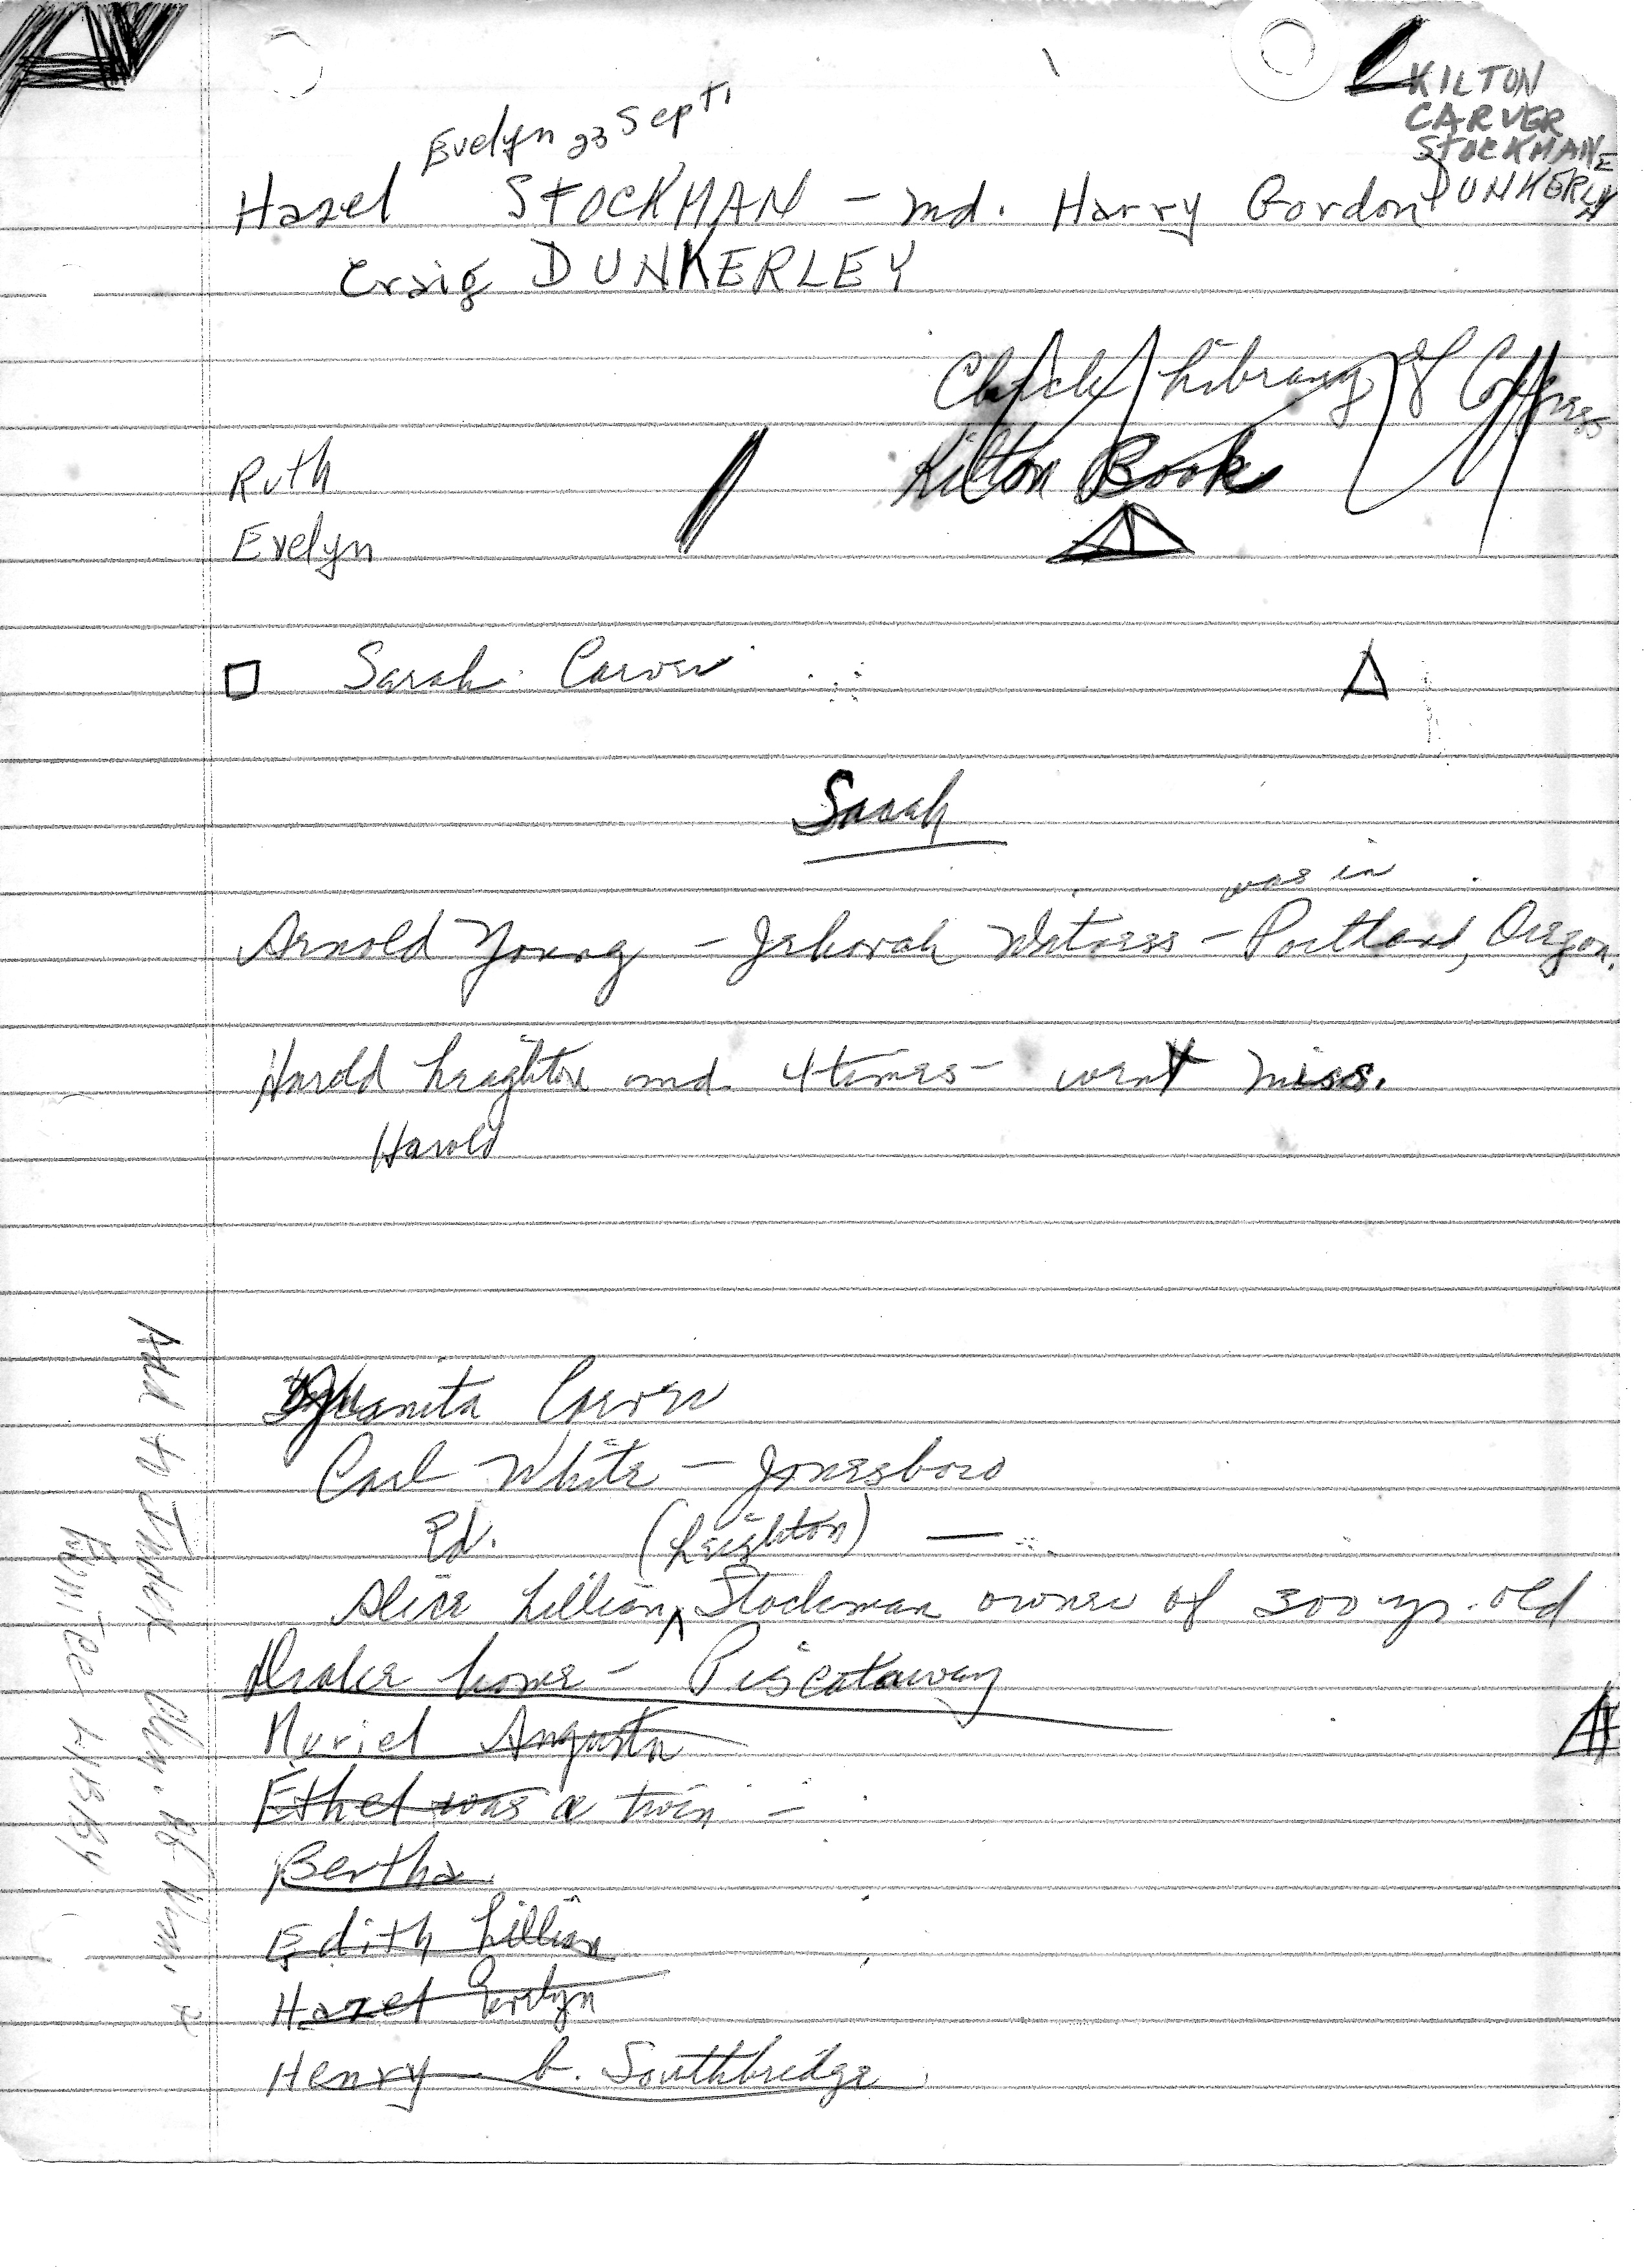 KILTON
CARVER
STOCKMAN
DUNKERLY
Evelyn 23 Sept
Hazel STOCKMAN - md. Harry Gordon
Craig DUNKERLEY
Check Library of Congress
Kilton Book
Ruth
Evelyn
Sarah Carver
Sarah
was in
Arnold Young - Jehovah Witness - Portland, Oregon.
Harold Leighton md. 4 times - went Miss.
Harold
Juanita Carver
Carl White - Jonesboro
Ed. (Leighton) —
Alice Lillian ^ Stockman owner of 300 yr. old
Drake home - Piscataway
Muriel Augusta
Ethel was a twin -
Bertha
Edith Lillian
Hazel Evelyn
Henry - b. Southbridge
Add to Index